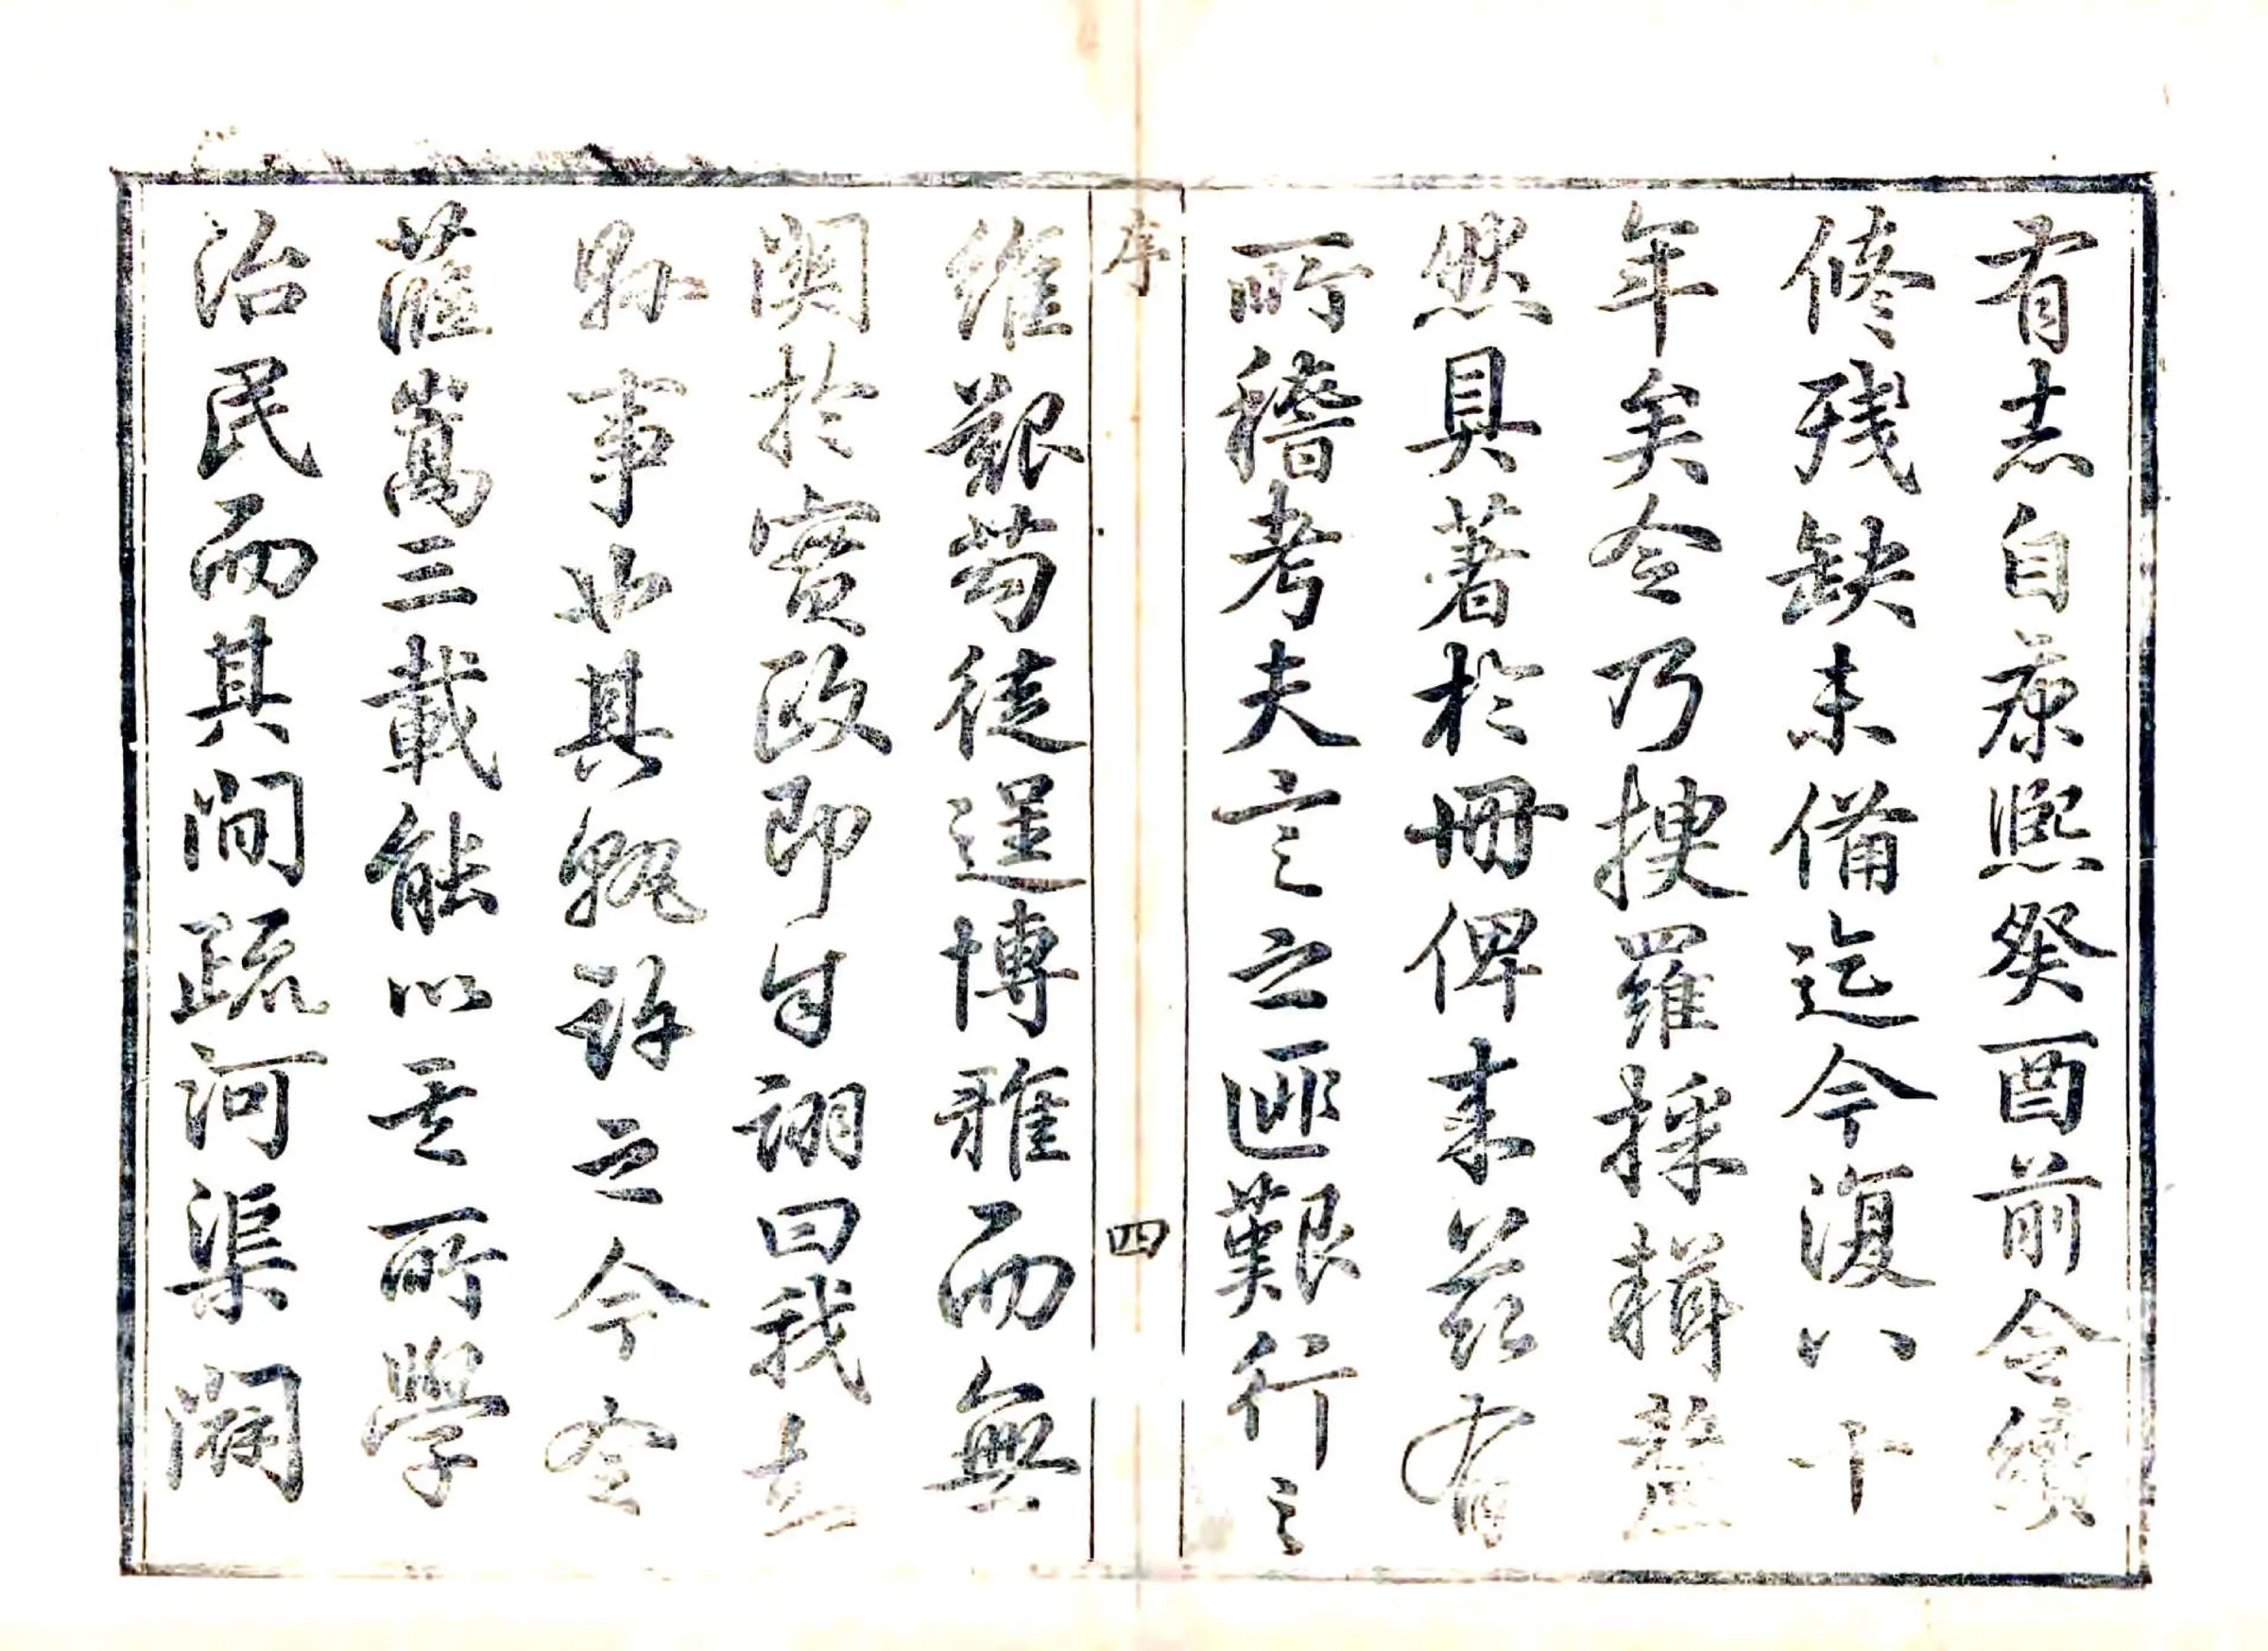 有志自康熙癸酉前令續
修殘缺未備迄今復八十
年矣令乃搜羅採輯釐
然具著於冊俾来茲有
所稽考夫言之匪艱行之
序
四
維艱苟徒逞博雅而無
関於實政即自詡曰我志
縣事也其孰許之今令
蒞嵩三載能以其所學
治民而其間疏河渠闢